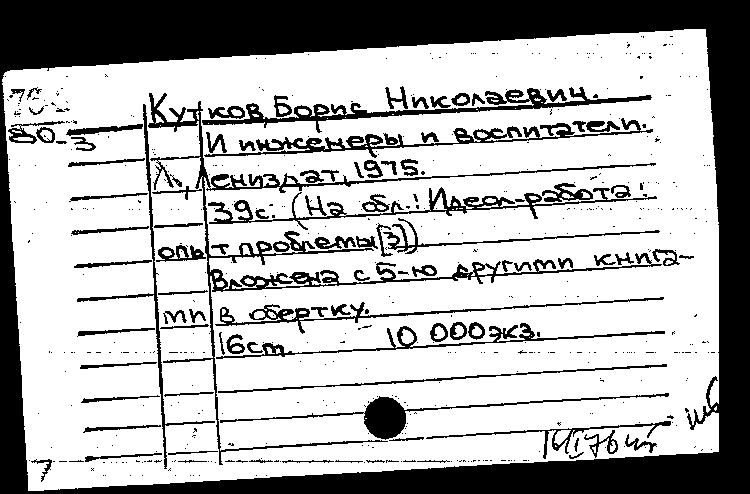 Кутков, Борис Николаевич.
80-3
И инженеры и воспитатели.
Л., Лениздат, 1975.
39с. (На обл.: Идеол-работа:
опыт, проблемы [3])
Вложена с 5-ю другими книга-
ми в обертку.
16см. 10 000экз.